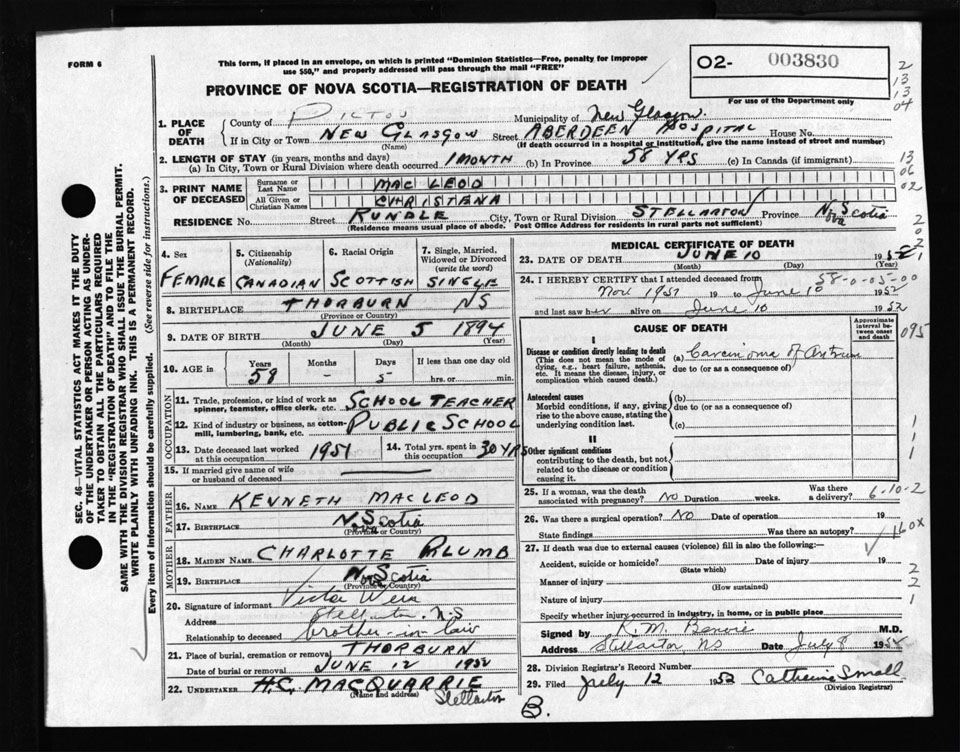 FORM 6
This form, if placed in an envelope, on which is printed "Dominion Statistics—Free, penalty for improper
use $50," and properly addressed will pass through the mail "FREE"
02- 003830
For use of the Department only
PROVINCE OF NOVA SCOTIA—REGISTRATION OF DEATH
2
13
13
04
1. PLACE OF DEATH
County of PICTOU Municipality of New Glasgow.
If in City or Town NEW GLASGOW Street ABERDEEN HOSPITAL House No.
(Name) (If death occurred in a hospital or institution, give the name instead of street and number)
2. LENGTH OF STAY (in years, months and days)
(a) In City, Town or Rural Division where death occurred 1 MONTH (b) In Province 58 YRS (c) In Canada (if immigrant)
13
06
02
3. PRINT NAME OF DECEASED
Surname or Last Name MAC LEOD
All Given or Christian Names CHRISTENA
RESIDENCE No. Street RUNDLE City, Town or Rural Division STELLARTON Province Nova Scotia
(Residence means usual place of abode. Post Office Address for residents in rural parts not sufficient)
2
0
2
1
SEC. 46—VITAL STATISTICS ACT MAKES IT THE DUTY
OF THE UNDERTAKER OR PERSON ACTING AS UNDER-
TAKER TO OBTAIN ALL THE PARTICULARS REQUIRED
IN THE "REGISTRATION OF DEATH" AND TO FILE THE
SAME WITH THE DIVISION REGISTRAR WHO SHALL ISSUE THE BURIAL PERMIT.
WRITE PLAINLY WITH UNFADING INK. THIS IS A PERMANENT RECORD.
Every item of Information should be carefully supplied. (See reverse side for instructions.)
4. Sex
FEMALE
5. Citizenship
(Nationality)
CANADIAN
6. Racial Origin
SCOTTISH
7. Single, Married,
Widowed or Divorced
(write the word)
SINGLE
8. BIRTHPLACE THORBURN NS
(Province or Country)
9. DATE OF BIRTH JUNE 5 1894
(Month) (Day) (Year)
10. AGE in Years Months Days If less than one day old
58 - 5- hrs. or min.
OCCUPATION
11. Trade, profession, or kind of work as
spinner, teamster, office clerk, etc. SCHOOL TEACHER
12. Kind of industry or business, as cotton-
mill, lumbering, bank, etc. PUBLIC SCHOOL
13. Date deceased last worked
at this occupation 1951
14. Total yrs. spent in
this occupation 30 YRS
15. If married give name of wife
or husband of deceased
FATHER
16. NAME KENNETH MACLEOD
17. BIRTHPLACE Nova Scotia
(Province or Country)
MOTHER
18. MAIDEN NAME CHARLOTTE PLUMB
19. BIRTHPLACE Nova Scotia
(Province or Country)
20. Signature of informant Victor Weir
Address Stellarton N.S
Relationship to deceased brother-in-law
21. Place of burial, cremation or removal THORBURN
Date of burial or removal JUNE 12 1952
22. UNDERTAKER H.C. MACQUARRIE
(Name and address) Stellarton
MEDICAL CERTIFICATE OF DEATH
23. DATE OF DEATH JUNE 10 1952
(Month) (Day) (Year)
24. I HEREBY CERTIFY that I attended deceased from 58-0-05-00
Nov 1951 19 to June 10 1952
and last saw her alive on June 10 1952
CAUSE OF DEATH
Approximate
interval be-
tween onset
and death
095
I
Disease or condition directly leading to death (a) Carcinoma of Antrum
(This does not mean the mode of
dying, e.g., heart failure, asthenia,
etc. It means the disease, injury, or
complication which caused death.)
due to (or as a consequence of)
Antecedent causes (b)
Morbid conditions, if any, giving
rise to the above cause, stating the
underlying condition last.
due to (or as a consequence of)
(c)
1
1
1
II
Other significant conditions
contributing to the death, but not
related to the disease or condition
causing it.
25. If a woman, was the death
associated with pregnancy? NO Duration weeks. Was there
a delivery? 6-10-2
26. Was there a surgical operation? NO Date of operation 19
State findings Was there an autopsy? 160X
27. If death was due to external causes (violence) fill in also the following:—
Accident, suicide or homicide? Date of injury 19
(State which)
Manner of injury
(How sustained)
Nature of injury
Specify whether injury occurred in industry, in home, or in public place
2
2
1
Signed by R. M. Benvie M.D.
Address Stellarton NS Date July 8 1952
28. Division Registrar's Record Number
29. Filed July 12 1952 Catherine Small
(Division Registrar)
B.